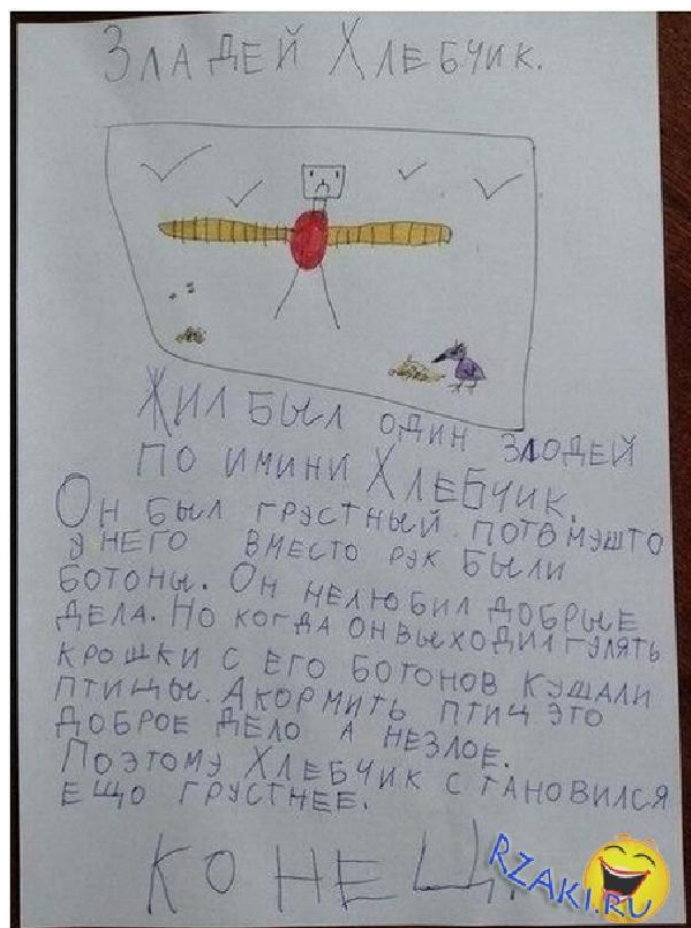 Зладей Хлебчик.
Жил был один злодей
по имини Хлебчик.
Он был грустный потомушто
у него вместо рук были
ботоны. Он нелюбил добрые
дела. Но когда он выходил гулять
крошки с его ботонов кушали
птицы. Акормить птиц это
доброе дело а незлое.
Поэтому Хлебчик становился
ещо грустнее.
Конец.
RZAKI.RU